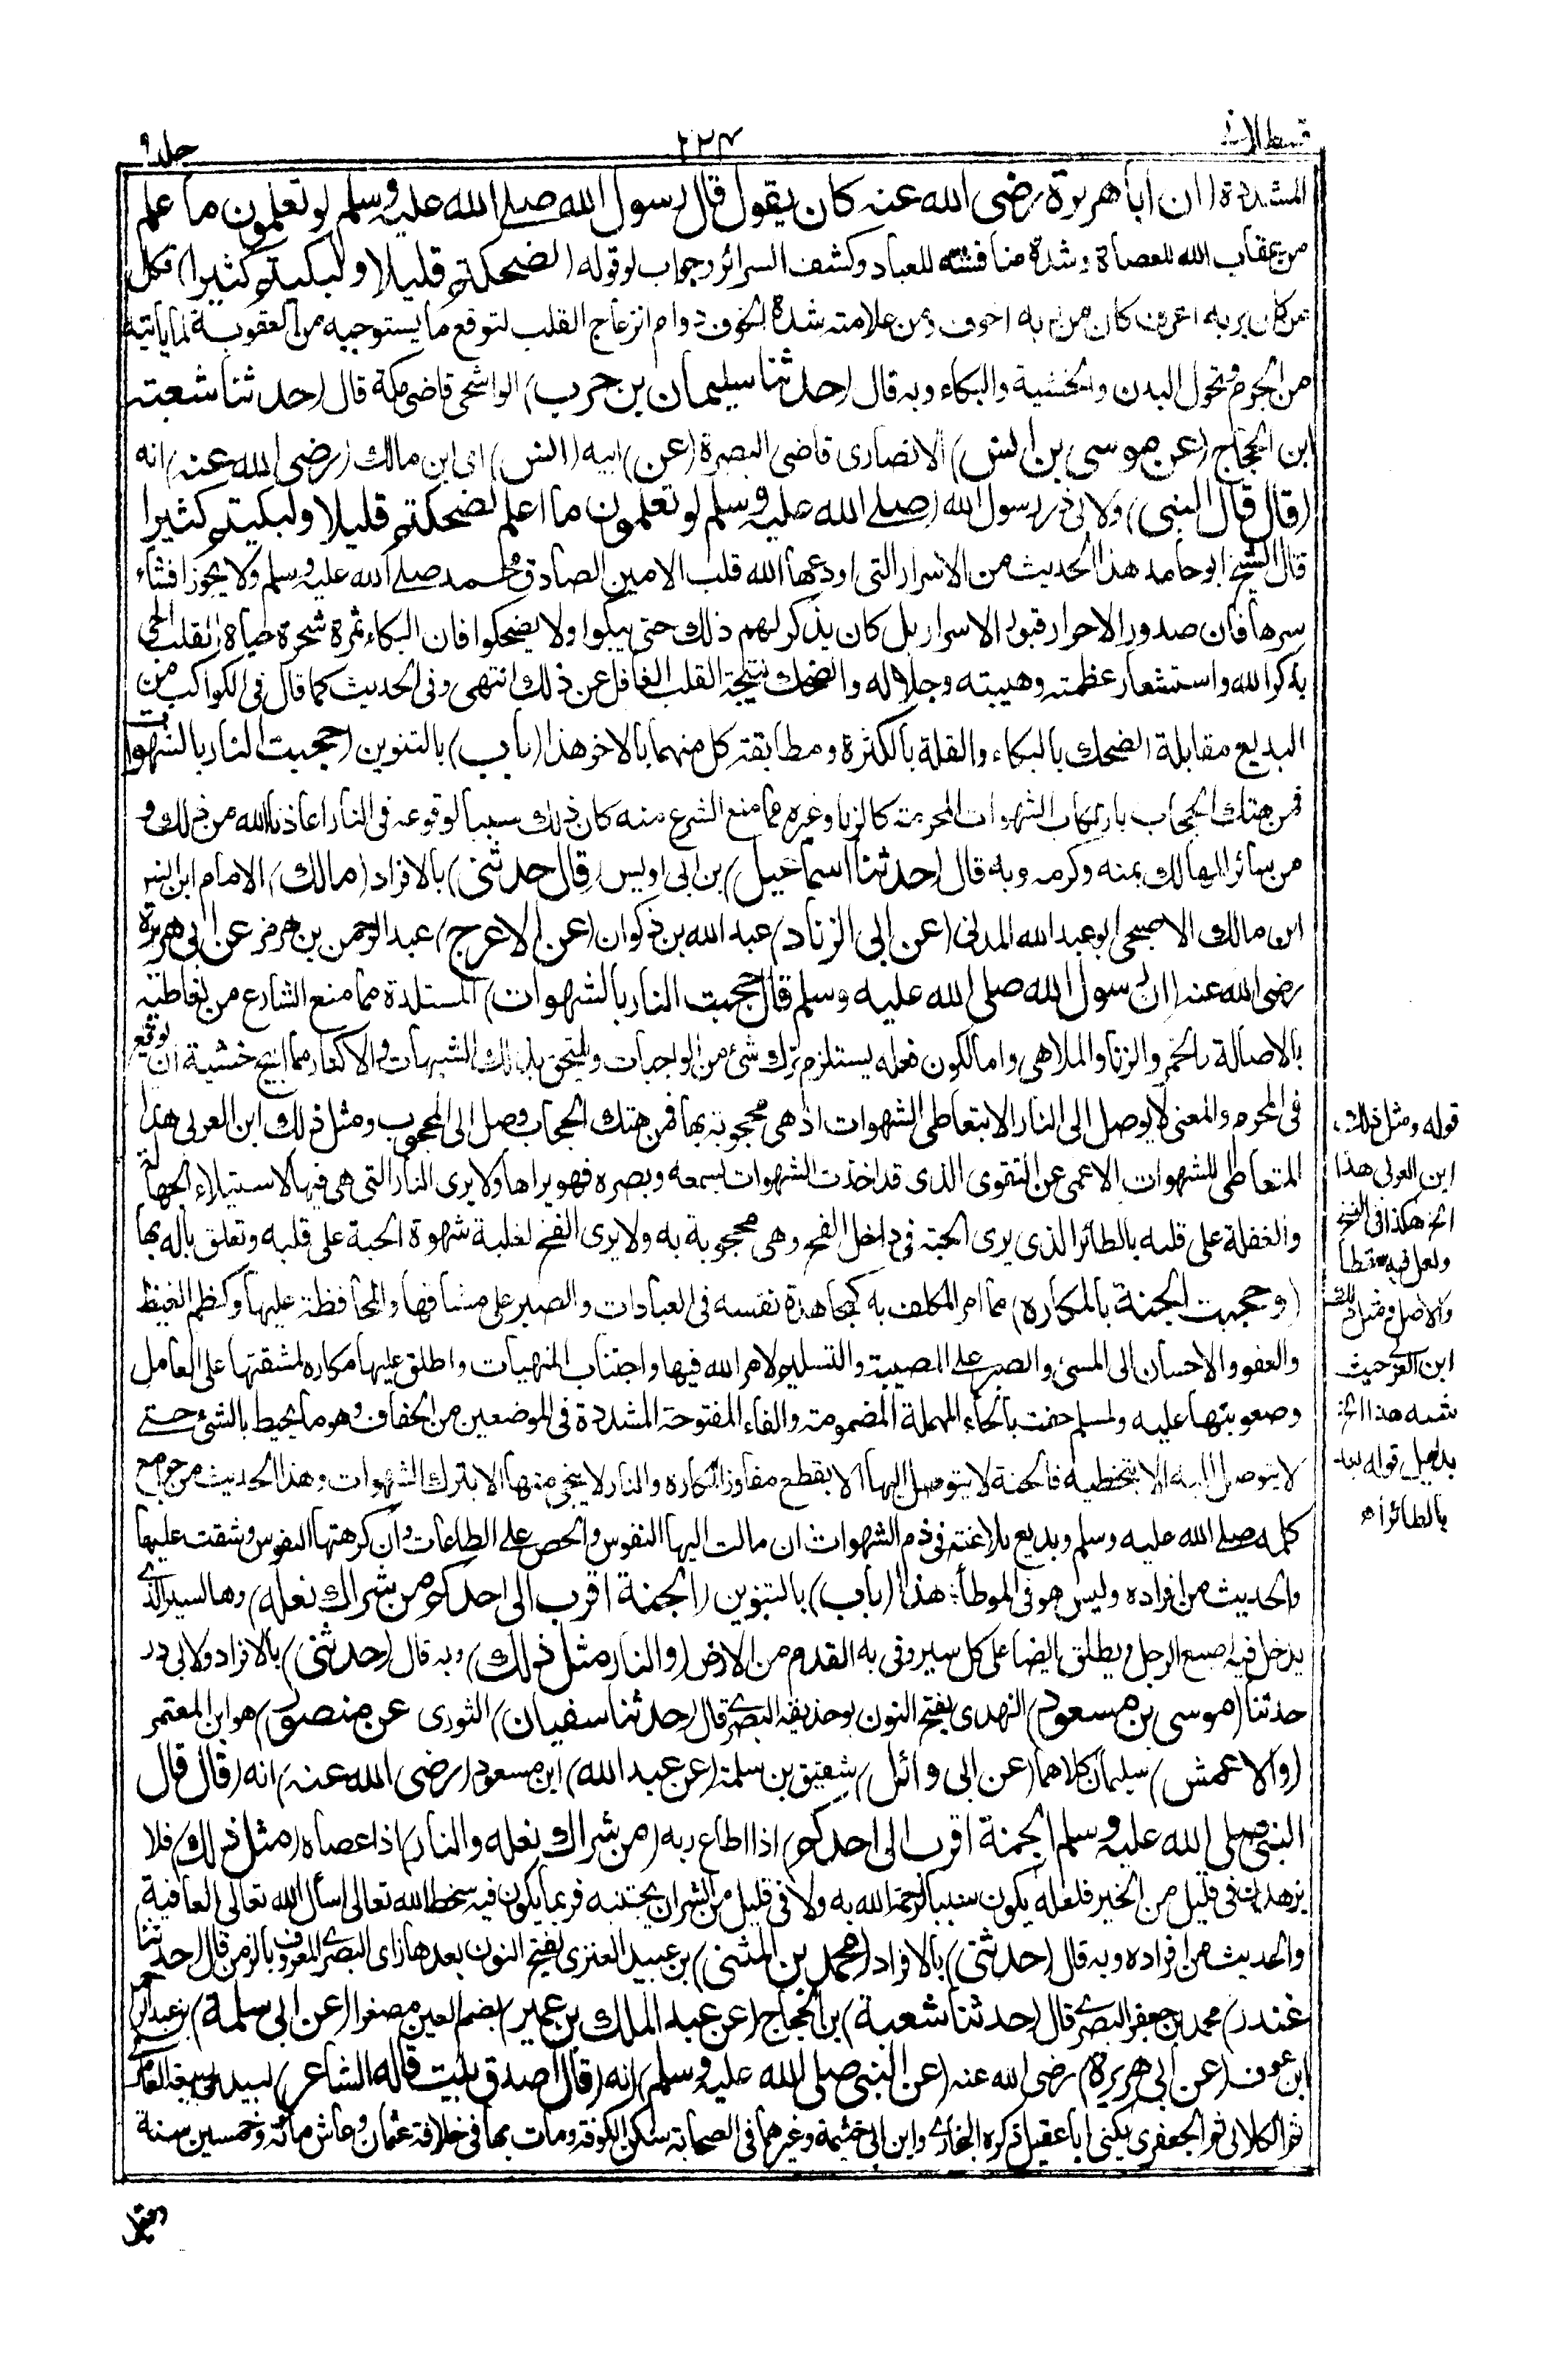 قسطلانى
٢٣٤
جلد ٩
المشددة (ان ابا هريرة رضى الله عنه كان يقول قال رسول الله صلى الله عليه وسلم لو تعلمون ما علم
من عقاب الله للعصاة وشدة مناقشته للعباد وكشف السرائر وجواب لو قوله (لضحكتم قليلا ولبكيتم كثيرا) فكل
من كان بربه اعرف كان من ربه اخوف ومن علامته شدة الخوف دوام انزعاج القلب لتوقع ما يستوجبه من العقوبة لما ياتيه
من الجرم ونحول البدن والخشية والبكاء وبه قال (حدثنا سليمان بن حرب) الواشحى قاضى مكة قال (حدثنا شعبة
ابن الحجاج (عن موسى بن انس) الانصارى قاضى البصرة (عن) ابيه (انس) اى ابن مالك (رضى الله عنه) انه
(قال قال النبى) ولابى ذر رسول الله (صلى الله عليه وسلم لو تعلمون ما اعلم لضحكتم قليلا ولبكيتم كثيرا
قال الشيخ ابو حامد هذا الحديث من الاسرار التى اودعها الله قلب الامين الصادق محمد صلى الله عليه وسلم ولا يجوز افشاء
سرها فان صدور الاحرار قبور الاسرار بل كان يذكر لهم ذلك حتى يبكوا ولا يضحكوا فان البكاء ثمرة شجرة حياة القلب الحى
بذكر الله واستشعار عظمته وهيبته وجلاله والضحك نتيجة القلب الغافل عن ذلك انتهى وفى الحديث كما قال فى الكواكب من
البديع مقابلة الضحك بالبكاء والقلة بالكثرة ومطابقة كل منهما بالاخر هذا (باب) بالتنوين (حجبت النار بالشهوات
فمن هتك الحجاب بارتكاب الشهوات المحرمة كالزنا وغيره مما منع الشرع منه كان ذلك سببا لوقوعه فى النار اعاذنا الله من ذلك و
من سائر المهالك بمنه وكرمه وبه قال (حدثنا اسماعيل) بن ابى اويس (قال حدثنى) بالافراد (مالك) الامام ابن انس
ابن مالك الاصبحى ابو عبد الله المدنى (عن ابى الزناد) عبد الله بن ذكوان (عن الاعرج) عبد الرحمن بن هرمز عن ابى هريرة
رضى الله عنه (ان رسول الله صلى الله عليه وسلم قال حجبت النار بالشهوات) المستلذة مما منع الشارع من تعاطيه
بالاصالة كالخمر والزنا والملاهى واما لكون فعله يستلزم ترك شئ من الواجبات ويلتحق بذلك الشبهات والاكثار مما ابيح خشية ان يوقع
فى المحرم والمعنى لا يوصل الى النار الا بتعاطى الشهوات اذ هى محجوبة بها فمن هتك الحجاب وصل الى المحجوب ومثل ذلك ابن العربى هذا
المتعاطى للشهوات الاعمى عن التقوى الذى قد اخذت الشهوات بسمعه وبصره فهو يراها ولا يرى النار التى هى فيها لاستيلاء الجهالة
والغفلة على قلبه بالطائر الذى يرى الحبة فى داخل الفخ وهى محجوبة به ولا يرى الفخ لغلبة شهوة الحبة على قلبه وتعلق باله بها
(وحجبت الجنة بالمكاره) مما امر المكلف به كمجاهدة نفسه فى العبادات والصبر على مشاقها والمحافظة عليها وكظم الغيظ
والعفو والاحسان الى المسئ والصبر على المصيبة والتسليم لامر الله فيها واجتناب المنهيات واطلق عليها مكاره لمشقتها على العامل
وصعوبتها عليه ولمسلم حفت بالحاء المهملة المضمومة والفاء المفتوحة المشددة فى الموضعين من الحفاف وهو ما يحيط بالشئ حتى
لا يتوصل اليه الا بتخطيه فالجنة لا يتوصل اليها الا بقطع مفاوز المكاره والنار لا ينجى منها الا بترك الشهوات وهذا الحديث من جوامع
كلمه صلى الله عليه وسلم وبديع بلاغته فى ذم الشهوات ان مالت اليها النفوس والحض على الطاعات وان كرهتها النفوس وشقت عليها
والحديث من افراده وليس هو فى الموطأ، هذا (باب) بالتنوين (الجنة اقرب الى احدكم من شراك نعله) وهو السير الذى
يدخل فيه اصبع الرجل ويطلق ايضا على كل سير وقى به القدم من الارض (والنار مثل ذلك) وبه قال (حدثنى) بالافراد ولابى ذر
حدثنا (موسى بن مسعود) النهدى بفتح النون بو حذيفة البصرى قال (حدثنا سفيان) الثورى عن منصور) هو ابن المعتمر
(والاعمش) سليمان كلاهما (عن ابى وائل) شقيق بن سلمة (عن عبد الله) ابن مسعود (رضى الله عنه) انه (قال قال
النبى صلى الله عليه وسلم الجنة اقرب الى احدكم) اذا اطاع ربه (من شراك نعله والنار) اذا عصاه (مثل ذلك) فلا
يزهدن فى قليل من الخير فلعله يكون سببا لرحمة الله به ولا فى قليل من الشر ان يجتنبه فربما يكون فيه سخط الله تعالى اسأل الله تعالى العافية
والحديث من افراده وبه قال (حدثنى) بالافراد (محمد بن المثنى) بن عبيد العنزى بفتح النون بعدها زاى البصرى المعروف بالزمن قال (حدثنا
غندر) محمد بن جعفر البصرى قال (حدثنا شعبة) بن الحجاج (عن عبد الملك بن عمير) بضم العين مصغرا (عن ابى سلمة) بن عبد الرحمن
ابن عوف (عن ابى هريرة) رضى الله عنه (عن النبى صلى الله عليه وسلم) انه (قال اصدق بيت قاله الشاعر) لبيد بن ربيعة العامرى
ثم الكلابى ثم الجعفرى يكنى ابا عقيل ذكره البخارى وابن ابى خيثمة وغيرهما فى الصحابة سكن الكوفة ومات بها فى خلافة عثمان وعاش مائة وخمسين سنة
قوله ومثل ذلك
ابن العربى هذا
الخ هكذا فى النسخ
ولعل فيه سقطا
والاصل ومثل ذلك
ابن العربى حيث
شبه هذا الخ
بدليل قوله بعد
بالطائر اه